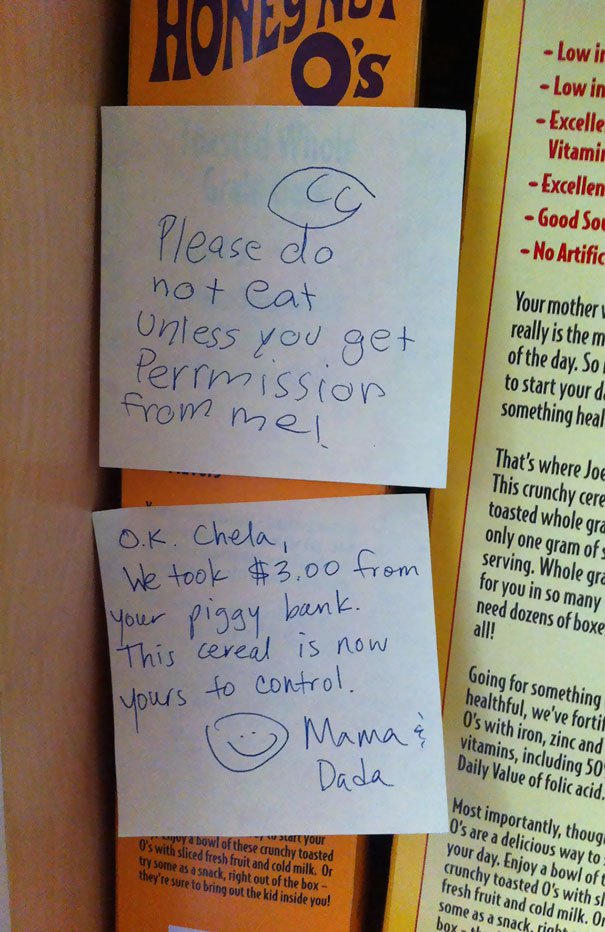 HONEY NUT
O's
Toasted Whole
CC
Please do
not eat
Unless you get
Perrmission
from me!
O.K. Chela,
We took $3.00 from
your piggy bank.
This cereal is now
yours to control.
Mama &
Dada
Enjoy a bowl of these crunchy toasted
O's with sliced fresh fruit and cold milk. Or
try some as a snack, right out of the box –
they're sure to bring out the kid inside you!
- Low
- Low in
-
Vitamin
-
- Good
- No
Your mother
really is the
of the day. So
to start your
something
That's where Joe
This crunchy
toasted whole
only one gram of
serving. Whole
for you in so many
need dozens of
all!
Going for something
healthful, we've
O's with iron, zinc and
vitamins, including 50
Daily Value of folic acid.
Most importantly,
O's are a delicious way to
your day. Enjoy a bowl of
crunchy toasted O's with
fresh fruit and cold milk. Or
some as a snack, right
box -